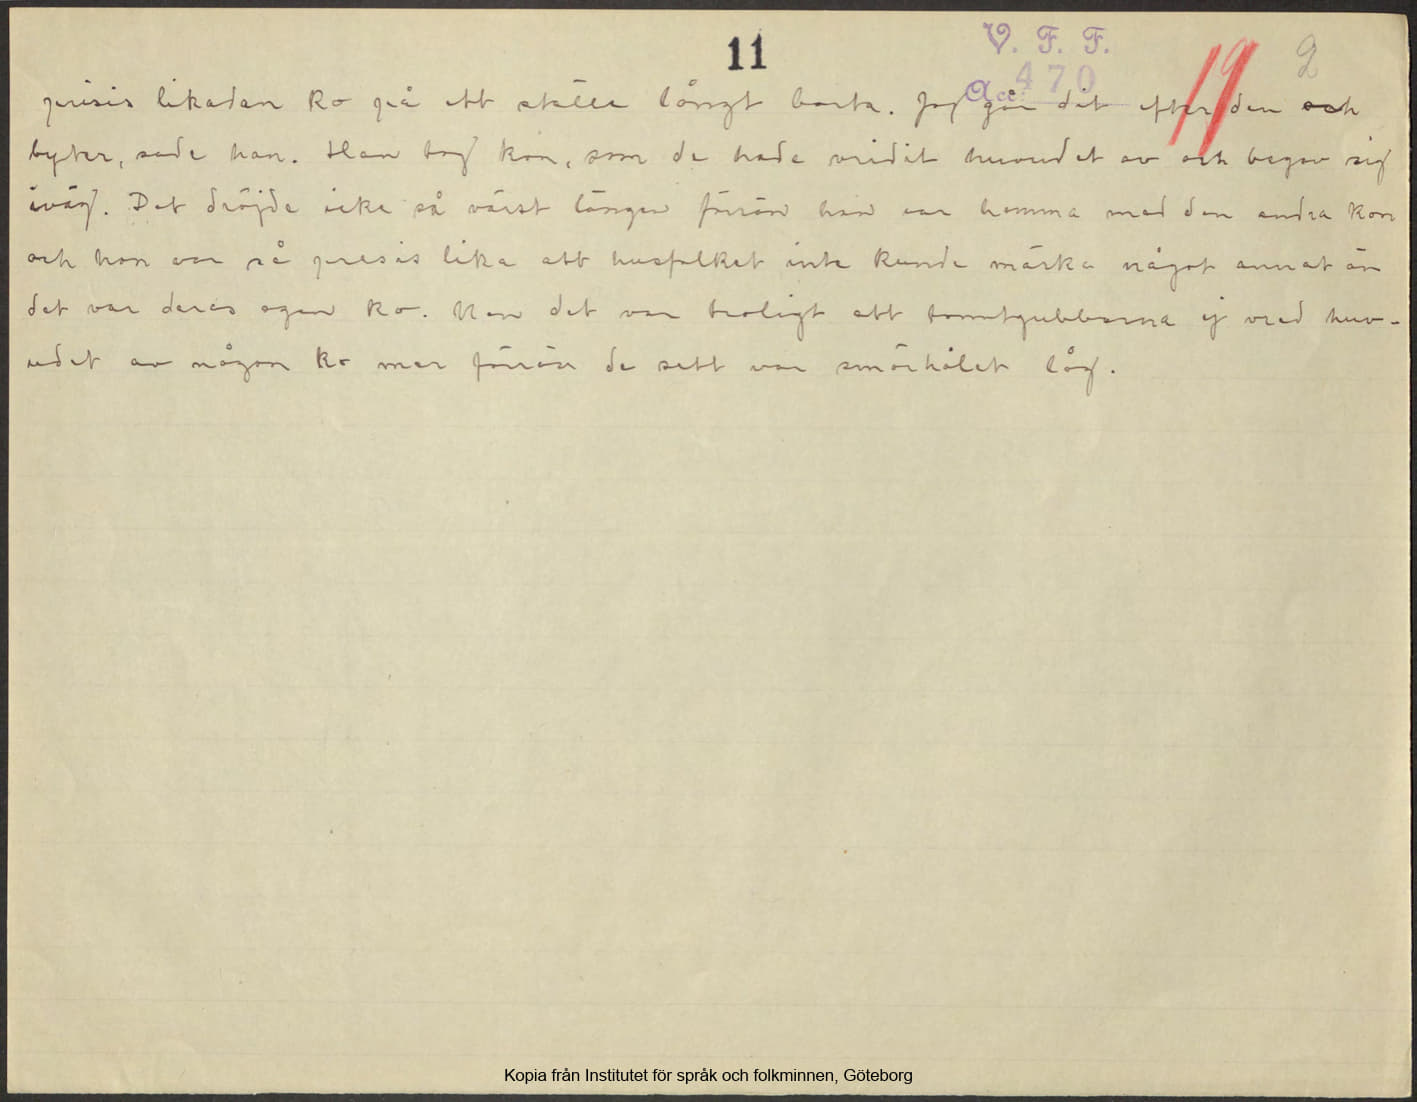 11
V. F. F.
Acc. 470
19
2
presis likadan ko på ett ställe långt borta. Jag går dit efter den och
byter, sade han. Han tog kon, som de hade vridit huvudet av och begav sig
iväg. Det dröjde icke så värst länge förrän han var hemma med den andra kon
och hon var så presis lika att husfolket inte kunde märka något annat än
det var deras egen ko. Men det var troligt att tomtgubbarna ej vred huv-
udet av någon ko mer förrän de sett var smörhålet låg.
Kopia från Institutet för språk och folkminnen, Göteborg